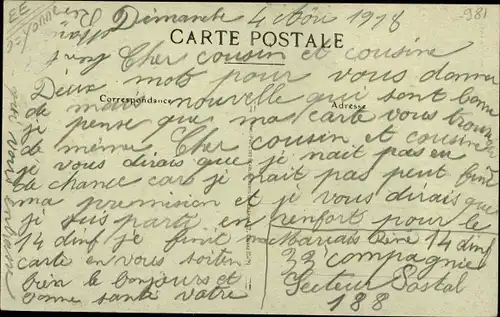 Dimanche 4 Aôu 1918
CARTE POSTALE
Cher cousin et cousine
Deux mots pour vous donner
Correspondance
Adresse
de mais nouvelle qui sont bonne
je pense que ma carte vous trouve
de même Cher cousin et cousine
je vous dirais que je nait pas eu
de chance car je nait pas peut finir
ma premision et je vous dirais que
je suis parti en renfort pour le
14 dinf je finit ma
carte en vous soiten
bien le bonjours et
bonne santé votre
Mariais Réné 14 dinf
33 compagnie
Secteur Postal
188
qui vous embrasse
EE
981